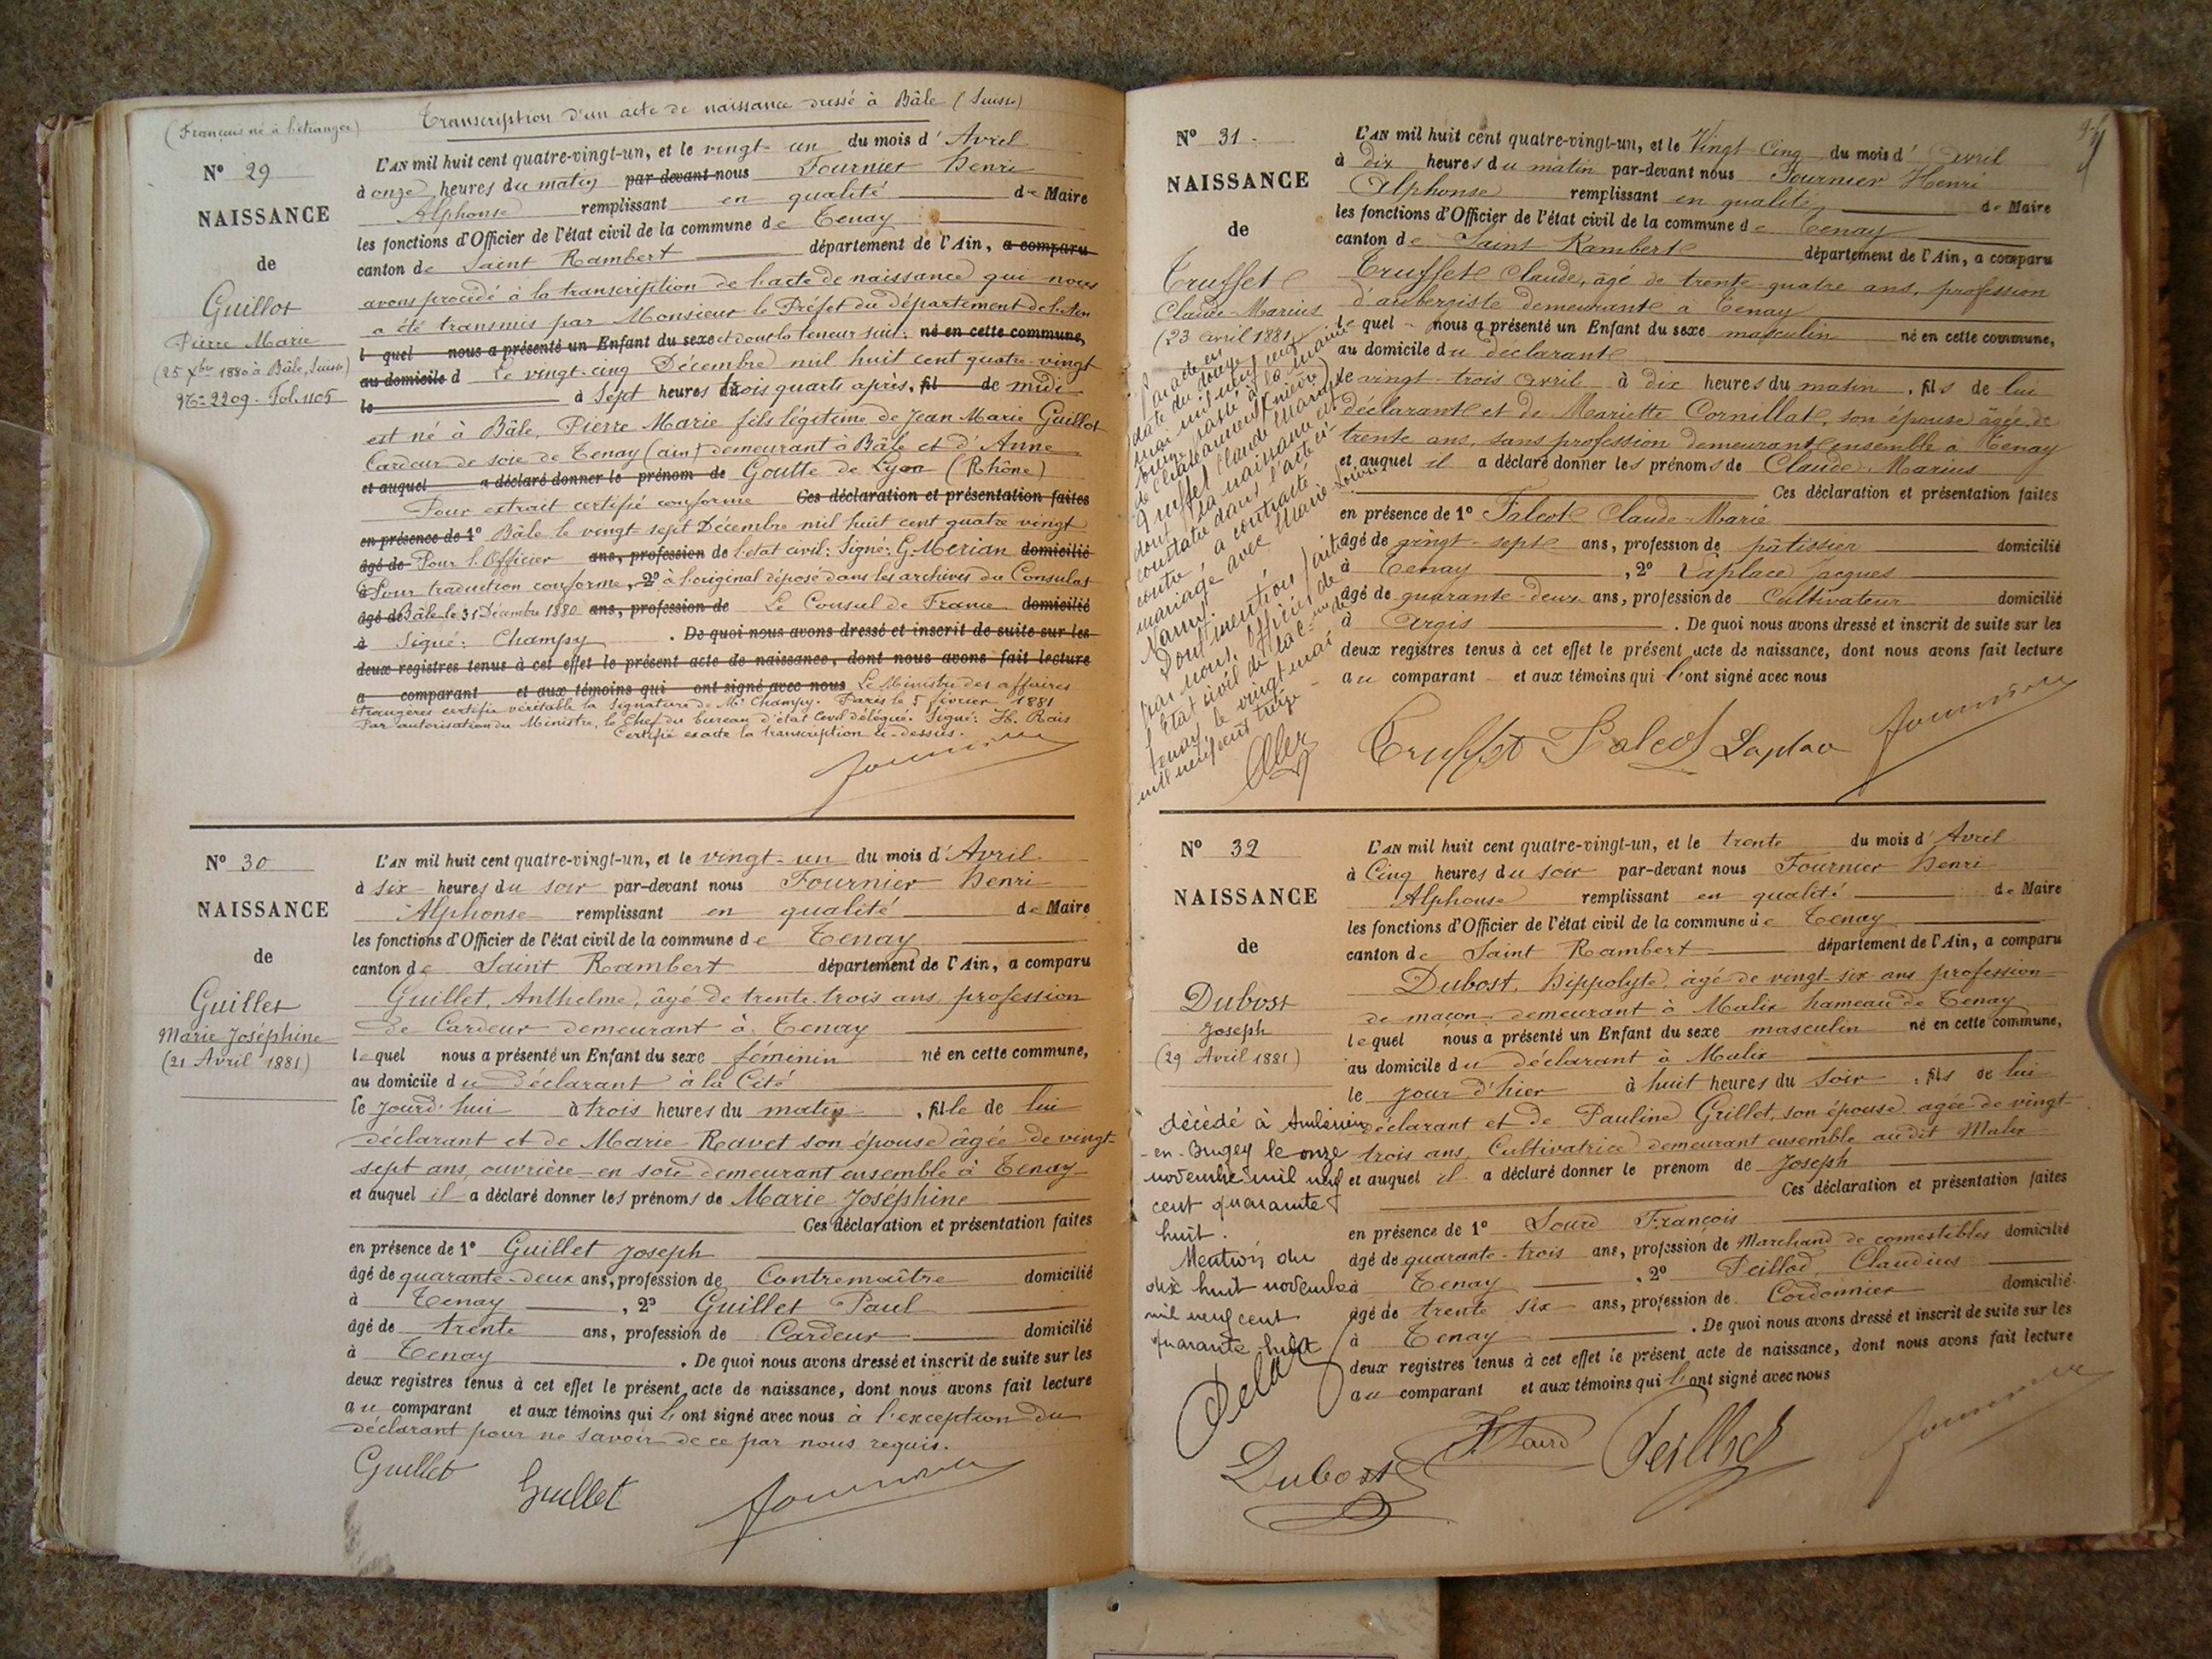 Transcription d'un acte de naissance dressé à Bâle (Suisse)
(Français né à l'étranger)
N° 29
NAISSANCE
de
Guillot
Pierre Marie
(25 Xbre 1880 à Bâle, Suisse)
N° 2209. Fol. 1105
L'AN mil huit cent quatre-vingt-un, et le vingt-un du mois d'Avril
à onze heures du matin par-devant nous Fournier Henri
Alphonse remplissant en qualité de Maire
les fonctions d'Officier de l'état civil de la commune de Tenay
canton de Saint Rambert département de l'Ain, a comparu
avons procédé à la transcription de l'acte de naissance qui nous
a été transmis par Monsieur le Préfet du département de l'Ain
l quel nous a présenté un Enfant du sexe et dont la teneur suit: né en cette commune,
au domicile d Le vingt-cinq Décembre mil huit cent quatre-vingt
le à Sept heures trois quarts après, fil de midi
est né à Bâle, Pierre Marie fils légitime de Jean Marie Guillot
Cardeur de soie de Tenay (ain) demeurant à Bâle et d'Anne
et auquel a déclaré donner le prénom de Goutte de Lyon (Rhône)
Pour extrait certifié conforme Ces déclaration et présentation faites
en présence de 1° Bâle le vingt-sept Décembre mil huit cent quatre vingt
âgé de Pour l'Officier ans, profession de l'état civil: Signé: G. Merian domicilié
à Pour traduction conforme, 2° à l'original déposé dans les archives du Consulat
âgé de Bâle le 31 Décembre 1880 ans, profession de Le Consul de France domicilié
à Signé: Champy . De quoi nous avons dressé et inscrit de suite sur les
deux registres tenus à cet effet le présent acte de naissance, dont nous avons fait lecture
a comparant et aux témoins qui ont signé avec nous Le Ministre des affaires
étrangères certifie véritable la signature de Mr Champy. Paris le 5 février 1881
Par autorisation du Ministre, le Chef du bureau d'état Civil délégué. Signé: H. Rais
Certifié exacte la transcription ci-dessus.
Fournier
N° 30
NAISSANCE
de
Guillet
Marie Joséphine
(21 Avril 1881)
L'AN mil huit cent quatre-vingt-un, et le vingt-un du mois d'Avril
à six heures du soir par-devant nous Fournier Henri
Alphonse remplissant en qualité de Maire
les fonctions d'Officier de l'état civil de la commune de Tenay
canton de Saint Rambert département de l'Ain, a comparu
Guillet, Anthelme, âgé de trente-trois ans, profession
de Cardeur demeurant à Tenay
lequel nous a présenté un Enfant du sexe féminin né en cette commune,
au domicile du déclarant à la Cité
le jourd'hui à trois heures du matin, fille de lui
déclarant et de Marie Ravet son épouse âgée de vingt-
sept ans, ouvrière en soie demeurant ensemble à Tenay
et auquel il a déclaré donner les prénoms de Marie Joséphine
Ces déclaration et présentation faites
en présence de 1° Guillet Joseph
âgé de quarante-deux ans, profession de Contremaître domicilié
à Tenay , 2° Guillet Paul
âgé de trente ans, profession de Cardeur domicilié
à Tenay . De quoi nous avons dressé et inscrit de suite sur les
deux registres tenus à cet effet le présent acte de naissance, dont nous avons fait lecture
au comparant et aux témoins qui l'ont signé avec nous à l'exception du
déclarant pour ne savoir de ce par nous requis.
Guillet Guillet Fournier
N° 31
NAISSANCE
de
Truffet
Claude-Marius
(23 avril 1881)
Par acte en
date du douze
mai mil neuf cent
treize passé à la mairie
de Chateauneuf (Nièvre)
Truffet Claude Marius
dont la naissance est
constatée dans l'acte ci-
contre a contracté
mariage avec Marie Louise
Dont mention faite
par nous, Officier de
l'état civil de la Cne de
Tenay le vingt mai
mil neuf cent treize
L'AN mil huit cent quatre-vingt-un, et le Vingt-Cinq du mois d'avril
à dix heures du matin par-devant nous Fournier Henri
Alphonse remplissant en qualité de Maire
les fonctions d'Officier de l'état civil de la commune de Tenay
canton de Saint Rambert département de l'Ain, a comparu
Truffet Claude, âgé de trente-quatre ans, profession
d'aubergiste demeurant à Tenay
lequel nous a présenté un Enfant du sexe masculin né en cette commune,
au domicile du déclarant
le vingt-trois avril à dix heures du matin, fils de lui
déclarant et de Mariette Cornillat, son épouse âgée de
trente ans, sans profession demeurant ensemble à Tenay
et auquel il a déclaré donner les prénoms de Claude-Marius
Ces déclaration et présentation faites
en présence de 1° Falcot Claude-Marie
âgé de vingt-sept ans, profession de pâtissier domicilié
à Tenay , 2° Laplace Jacques
âgé de quarante-deux ans, profession de Cultivateur domicilié
à Argis . De quoi nous avons dressé et inscrit de suite sur les
deux registres tenus à cet effet le présent acte de naissance, dont nous avons fait lecture
au comparant et aux témoins qui l'ont signé avec nous
Truffet Falcot Laplace Fournier
N° 32
NAISSANCE
de
Dubost
Joseph
(29 Avril 1881)
décédé à Ambérieu
-en-Bugey le onze
novembre mil neuf
cent quarante
huit.
Mention du
dix huit novembre
mil neuf cent
quarante huit
L'AN mil huit cent quatre-vingt-un, et le trente du mois d'Avril
à Cinq heures du soir par-devant nous Fournier Henri
Alphonse remplissant en qualité de Maire
les fonctions d'Officier de l'état civil de la commune de Tenay
canton de Saint Rambert département de l'Ain, a comparu
Dubost, Hippolyte, âgé de vingt-six ans profession
de maçon demeurant à Malix hameau de Tenay
lequel nous a présenté un Enfant du sexe masculin né en cette commune,
au domicile du déclarant à Malix
le jour d'hier à huit heures du soir, fils de lui
déclarant et de Pauline Grillet, son épouse agée de vingt-
trois ans, Cultivatrice demeurant ensemble au dit Malix
et auquel il a déclaré donner le prénom de Joseph
Ces déclaration et présentation faites
en présence de 1° Sourd François
âgé de quarante-trois ans, profession de Marchand de comestibles domicilié
à Tenay , 2° Peillod Claudius
âgé de trente six ans, profession de Cordonnier domicilié
à Tenay . De quoi nous avons dressé et inscrit de suite sur les
deux registres tenus à cet effet le présent acte de naissance, dont nous avons fait lecture
au comparant et aux témoins qui l'ont signé avec nous
Dubost F. Sourd Peillod Fournier